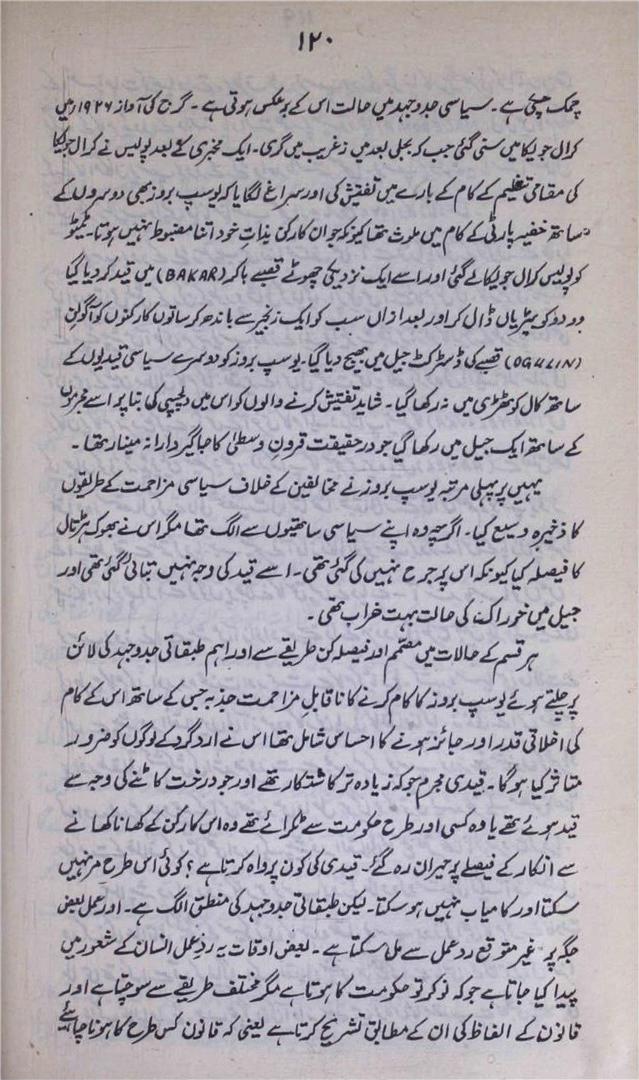 ۱۲۰
چمک چپتی ہے ۔ سیاسی جدوجہد میں حالت اس کے برعکس ہوتی ہے ۔ گرج کی آواز ۱۹۲۶ء میں
کرال جولیکا میں سنی گئی جب کہ بجلی بعد میں زغریب میں گری ۔ ایک مخبری کے بعد پولیس نے کرال جولیکا
کی مقامی تنظیم کے کام کے بارے میں تفتیش کی اور سراغ لگایا کہ یوسپ بروز بھی دوسروں کے
ساتھ خفیہ پارٹی کے کام میں ملوث تھا کیونکہ جوان کارکن بذات خود اتنا مضبوط نہیں ہوتا ۔ ٹیٹو
کو پولیس کرال جولیکا لے گئی اور اسے ایک نزدیکی چھوٹے قصبے باکر (BAKAR) میں قید کر دیا گیا
دو دو کو بیڑیاں ڈال کر اور بعد ازاں سب کو ایک زنجیر سے باندھ کر ساتوں کارکنوں کو آگولن
(OGULIN) قصبے کی ڈسٹرکٹ جیل میں بھیج دیا گیا ۔ یوسپ بروز کو دوسرے سیاسی قیدیوں کے
ساتھ کال کوٹھڑی میں نہ رکھا گیا ۔ شاید تفتیش کرنے والوں کو اس میں دلچسپی کی بنا پر اسے مجرموں
کے ساتھ ایک جیل میں رکھا گیا جو در حقیقت قرونِ وسطیٰ کا جاگیردارانہ مینار تھا ۔
یہیں پر پہلی مرتبہ یوسپ بروز نے مخالفین کے خلاف سیاسی مزاحمت کے طریقوں
کا ذخیرہ وسیع کیا ۔ اگرچہ وہ اپنے سیاسی ساتھیوں سے الگ تھا مگر اس نے بھوک ہڑتال
کا فیصلہ کیا کیونکہ اس پر جرح نہیں کی گئی تھی ۔ اسے قید کی وجہ نہیں بتائی گئی تھی اور
جیل میں خوراک کی حالت بہت خراب تھی ۔
ہر قسم کے حالات میں مصمّم اور فیصلہ کن طریقے سے اور اہم طبقاتی جدوجہد کی لائن
پر چلتے ہوئے یوسپ بروز کا کام کرنے کا ناقابلِ مزاحمت جذبہ جس کے ساتھ اس کے کام
کی اخلاقی قدر اور جائز ہونے کا احساس شامل تھا اس نے ارد گرد کے لوگوں کو ضرور
متاثر کیا ہو گا ۔ قیدی مجرم جو کہ زیادہ تر کاشتکار تھے اور جو درخت کاٹنے کی وجہ سے
قید ہوئے تھے یا وہ کسی اور طرح حکومت سے ٹکرائے تھے وہ اس کارکن کے کھانا کھانے
سے انکار کے فیصلے پر حیران رہ گئے ۔ قیدی کی کون پرواہ کرتا ہے ؟ کوئی اس طرح مر نہیں
سکتا اور کامیاب نہیں ہو سکتا ۔ لیکن طبقاتی جدوجہد کی منطق الگ ہے ۔ اور عمل بعض
جگہ پر غیر متوقع ردعمل سے مل سکتا ہے ۔ بعض اوقات یہ ردِعمل انسان کے شعور میں
پیدا کیا جاتا ہے جو کہ نوکر تو حکومت کا ہوتا ہے مگر مختلف طریقے سے سوچتا ہے اور
قانون کے الفاظ کی ان کے مطابق تشریح کرتا ہے یعنی کہ قانون کس طرح کا ہونا چاہئیے